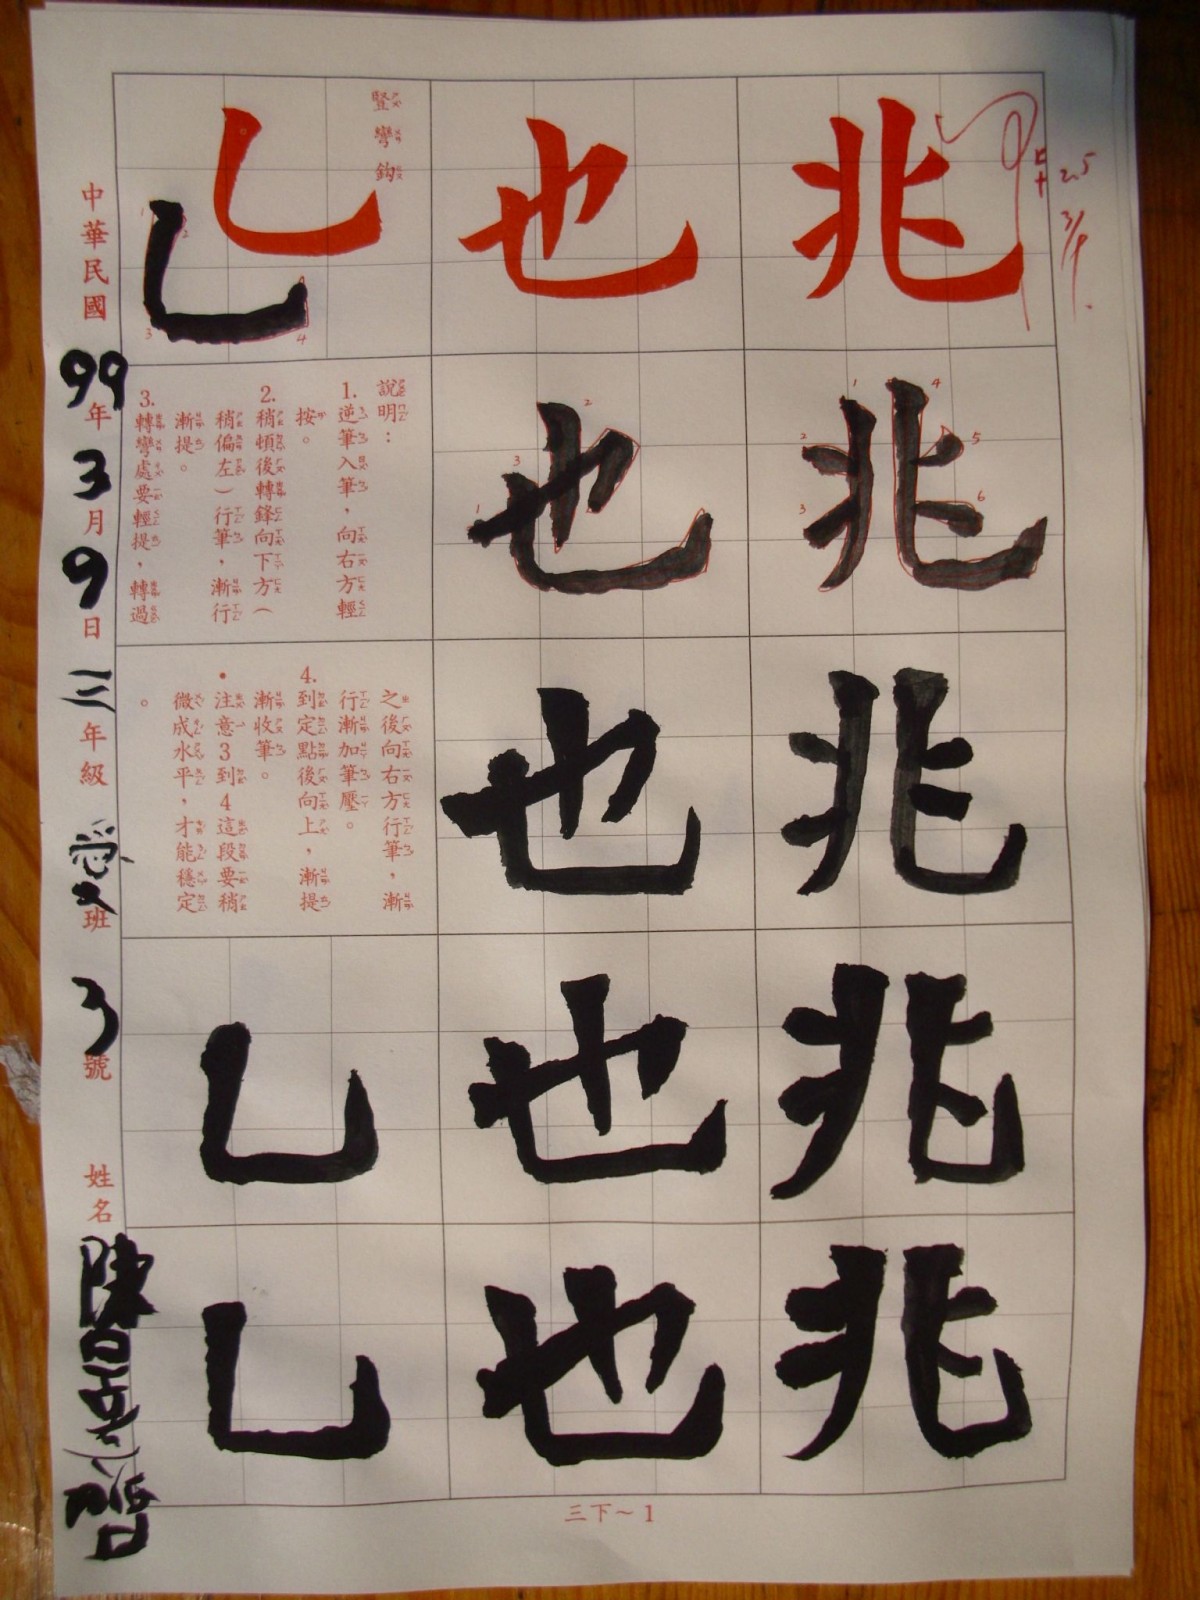 兆
兆
兆
兆
兆
也
也
也
也
也
豎彎鈎
乚
乚
說明：
1.逆筆入筆，向右方輕
按。
2.稍頓後轉鋒向下方（
稍偏左）行筆，漸行
漸提。
3.轉彎處要輕提，轉過
之後向右方行筆，漸
行漸加筆壓。
4.到定點後向上，漸提
漸收筆。
•注意3到4這段要稍
微成水平，才能穩定
。
乚
乚
中華民國99年3月9日三年級愛班3號 姓名陳昱
三下～1